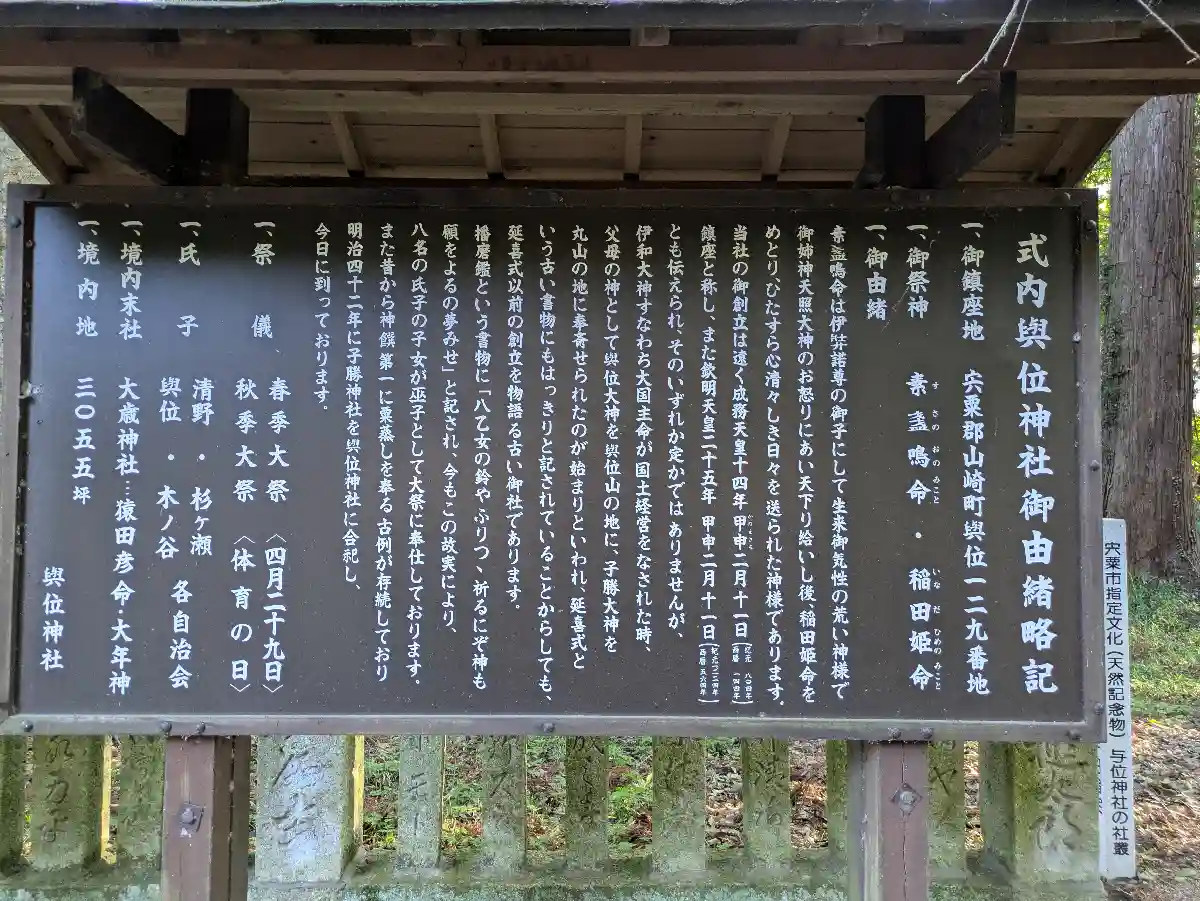 式内與位神社御由緒略記
一、御鎮座地 宍粟郡山崎町與位一二九番地
一、御祭神 素盞鳴命・稲田姫命
すさのおのみこと いなだひめのみこと
一、御由緒
素盞鳴命は伊弉諾尊の御子にして生来御気性の荒い神様で
御姉神天照大神のお怒りにあい天下り給いし後、稲田姫命を
めとりひたすら心清々しき日々を送られた神様であります。
当社の御創立は遠く成務天皇十四年甲申二月十一日(紀元 八〇四年 西暦 一四四年)
鎮座と称し、また欽明天皇二十五年 甲申二月十一日(紀元一二二四年 西暦 五六四年)
とも伝えられ、そのいずれか定かではありませんが、
伊和大神すなわち大国主命が国土経営をなされた時、
父母の神として與位大神を與位山の地に、子勝大神を
丸山の地に奉斎せられたのが始まりといわれ、延喜式と
いう古い書物にもはっきりと記されていることからしても、
延喜式以前の創立を物語る古い御社であります。
播磨鑑という書物に「八乙女の鈴やふりつゝ祈るにぞ神も
願をよるの夢みせ」と記され、今もこの故実により、
八名の氏子の子女が巫子として大祭に奉仕しております。
また昔から神饌第一に粟蒸しを奉る古例が存続しており
明治四十二年に子勝神社を與位神社に合祀し、
今日に到っております。
一、祭儀 春季大祭〈四月二十九日〉
秋季大祭〈体育の日〉
一、氏子 清野・杉ヶ瀬
與位・木ノ谷 各自治会
一、境内末社 大歳神社…猿田彦命・大年神
一、境内地 三〇五五坪
與位神社
宍粟市指定文化(天然記念物)与位神社の社叢